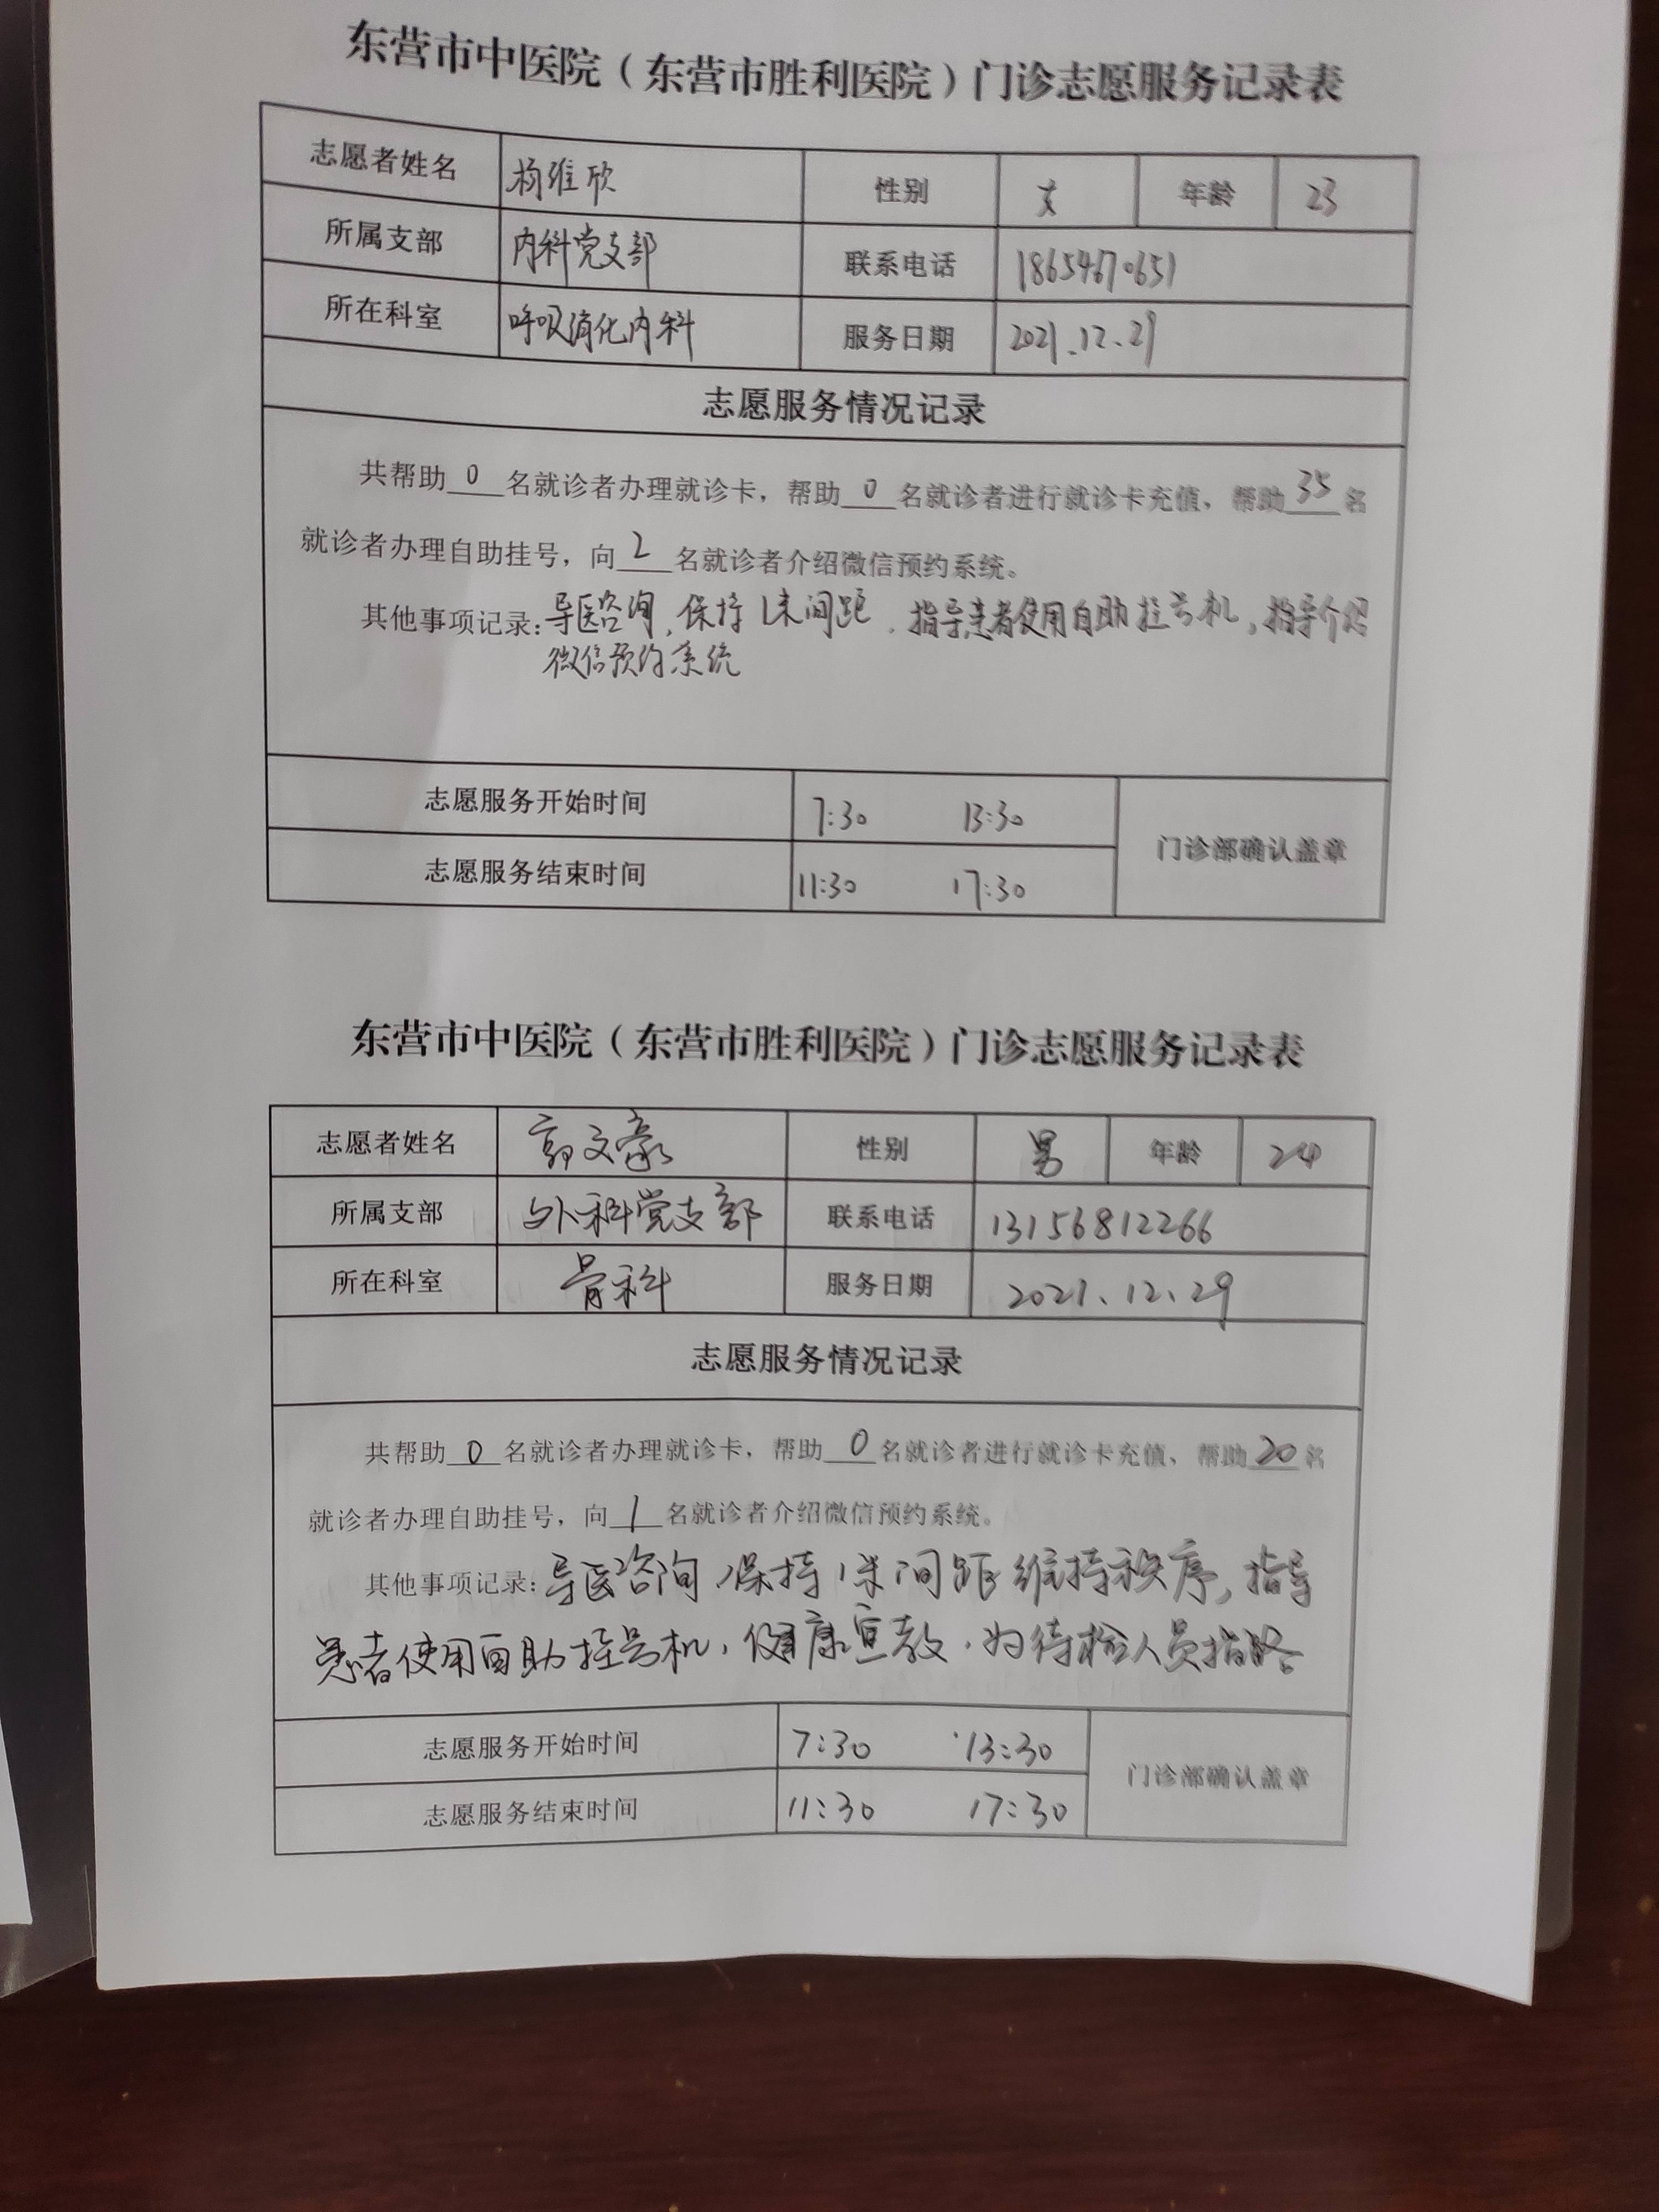 东营市中医院（东营市胜利医院）门诊志愿服务记录表
志愿者姓名 杨维欣 性别 女 年龄 23
所属支部 内科党支部 联系电话 18654670651
所在科室 呼吸消化内科 服务日期 2021.12.29
志愿服务情况记录
共帮助 0 名就诊者办理就诊卡，帮助 0 名就诊者进行就诊卡充值，帮助 35 名
就诊者办理自助挂号，向 2 名就诊者介绍微信预约系统。
其他事项记录：导医咨询，保持1米间距，指导患者使用自助挂号机，指导介绍
微信预约系统
志愿服务开始时间 7:30 13:30
门诊部确认盖章
志愿服务结束时间 11:30 17:30
东营市中医院（东营市胜利医院）门诊志愿服务记录表
志愿者姓名 郭文豪 性别 男 年龄 24
所属支部 外科党支部 联系电话 13156812266
所在科室 骨科 服务日期 2021.12.29
志愿服务情况记录
共帮助 0 名就诊者办理就诊卡，帮助 0 名就诊者进行就诊卡充值，帮助 20 名
就诊者办理自助挂号，向 1 名就诊者介绍微信预约系统。
其他事项记录：导医咨询，保持1米间距维持秩序，指导
患者使用自助挂号机，健康宣教，为待检人员指路
志愿服务开始时间 7:30 13:30
门诊部确认盖章
志愿服务结束时间 11:30 17:30